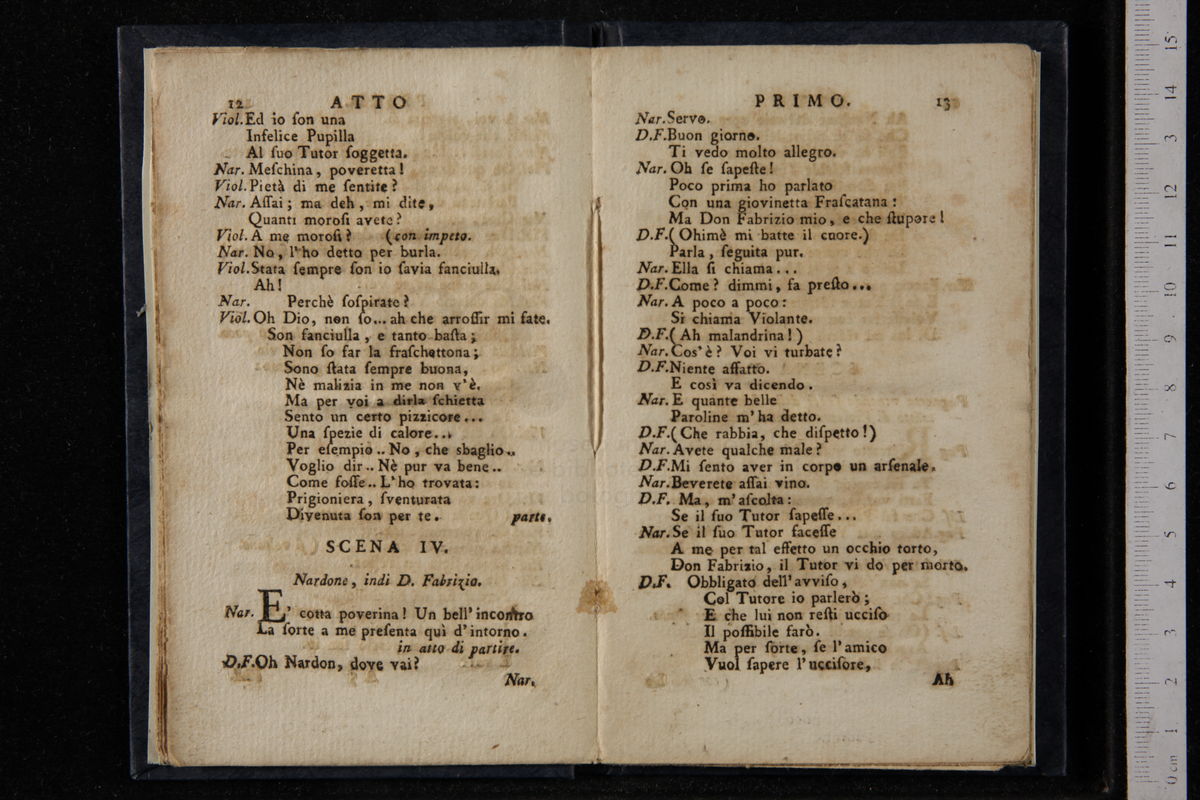 12 ATTO
Viol. Ed io ſon una
Infelice Pupilla
Al ſuo Tutor ſoggetta.
Nar. Meſchina, poveretta!
Viol. Pietà di me ſentite?
Nar. Aſſai; ma deh, mi dite,
Quanti moroſi avete?
Viol. A me moroſi? (con impeto.
Nar. No, l'ho detto per burla.
Viol. Stata ſempre ſon io ſavia fanciulla.
Ah!
Nar. Perchè ſoſpirate?
Viol. Oh Dio, non ſo... ah che arroſſir mi fate.
Son fanciulla, e tanto baſta;
Non ſo far la fraſchettona;
Sono ſtata ſempre buona,
Nè malizia in me non v'è.
Ma per voi a dirla ſchietta
Sento un certo pizzicore...
Una ſpezie di calore...
Per eſempio.. No, che sbaglio..
Voglio dir.. Nè pur va bene..
Come foſſe.. L'ho trovata:
Prigioniera, ſventurata
Divenuta ſon per te. parte.
SCENA IV.
Nardone, indi D. Fabrizio.
Nar. E' cotta poverina! Un bell'incontro
La ſorte a me preſenta quì d'intorno.
in atto di partire.
D.F. Oh Nardon, dove vai?
Nar.
PRIMO. 13
Nar. Servo.
D.F. Buon giorno.
Ti vedo molto allegro.
Nar. Oh ſe ſapeſte!
Poco prima ho parlato
Con una giovinetta Fraſcatana:
Ma Don Fabrizio mio, e che ſtupore!
D.F. (Ohimè mi batte il cuore.)
Parla, ſeguita pur.
Nar. Ella ſi chiama...
D.F. Come? dimmi, fa preſto...
Nar. A poco a poco:
Si chiama Violante.
D.F. (Ah malandrina!)
Nar. Cos'è? Voi vi turbate?
D.F. Niente affatto.
E così va dicendo.
Nar. E quante belle
Paroline m'ha detto.
D.F. (Che rabbia, che diſpetto!)
Nar. Avete qualche male?
D.F. Mi ſento aver in corpo un arſenale.
Nar. Beverete aſſai vino.
D.F. Ma, m'aſcolta:
Se il ſuo Tutor ſapeſſe...
Nar. Se il ſuo Tutor faceſſe
A me per tal effetto un occhio torto,
Don Fabrizio, il Tutor vi do per morto.
D.F. Obbligato dell'avviſo,
Col Tutore io parlerò;
E che lui non reſti ucciſo
Il poſſibile farò.
Ma per ſorte, ſe l'amico
Vuol ſapere l'ucciſore,
Ah
0 cm 1 2 3 4 5 6 7 8 9 10 11 12 13 14 15